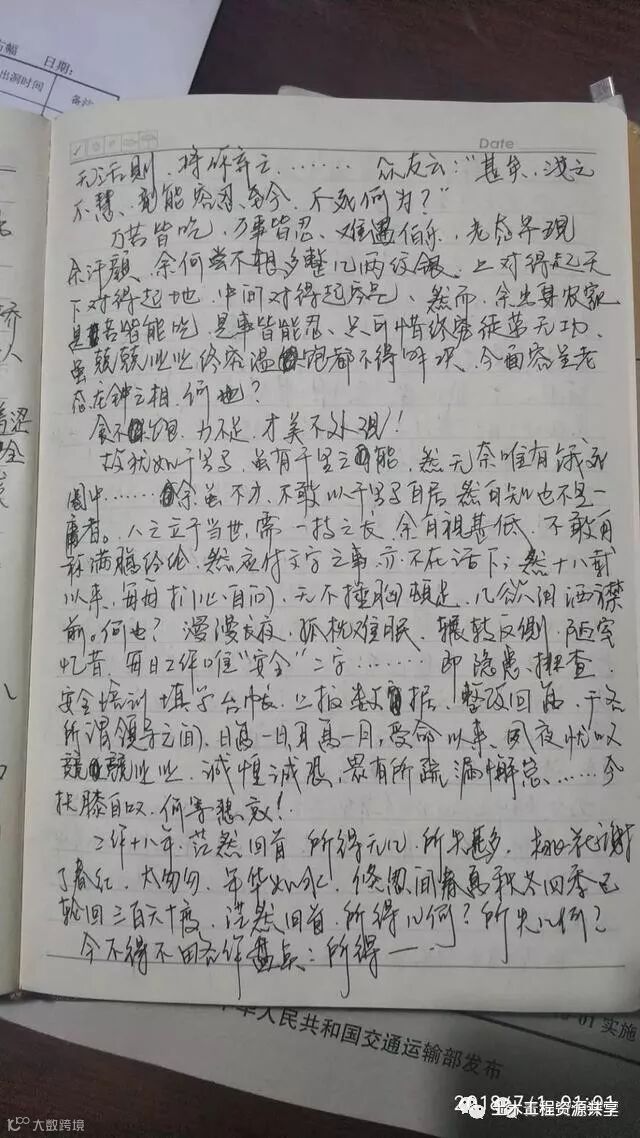 方幅 日期:
出洞时间
备注
Date
无法则,将你弃之……… 众友云:"甚矣,汝之
不慧,竟能容忍至今,不死何为?"
万苦皆吃,万事皆忍、难遇伯乐,老态早现
余汗颜,余何尝不想多整几两纹银,上对得起天
下对得起地,中间对得起房兄、然而,余出身农家
是苦皆能吃 是事皆能忍、只可惜终究徒劳无功、
虽兢兢业业终究温饱都不得解决、今面容呈老
态龙钟之相,何也?
食不饱、力不足,才美不外观!
故犹如千里马,虽有千里之能,然无奈唯有饿死
圈中……余虽不才,不敢以千里马自居 然自知也不是一
庸者。人之立于当世,需一技之长,余自视甚低,不敢自
称满腹经纶,然应付文字之事,亦不在话下;然十八载
以来,每每扪心自问,无不捶胸顿足,几欲泪洒襟
前。何也?漫漫长夜,孤枕难眠、辗转反侧,陋室
忆昔,每日工作唯"安全"二字……… 即隐患排查
安全培训 填写台帐、上报数据、整改回复,于各
所谓领导之间,日复一日,月复一月,受命以来、夙夜忧叹
兢兢业业,诚惶诚恐,最有所疏漏懈怠、……今
扶膝自叹,何等悲哀!
工作十八年,茫然回首 所得无几,所失甚多,桃花谢
了春红,太匆匆,年华如水,倏忽间春夏秋冬四季已
轮回三百六十度,茫然回首,所得几何?所失几何?
今不得不回合作盘点:所得一……
01 实施
中华人民共和国交通运输部发布
2018/7/1 01:01
土木工程资源共享
大数跨境